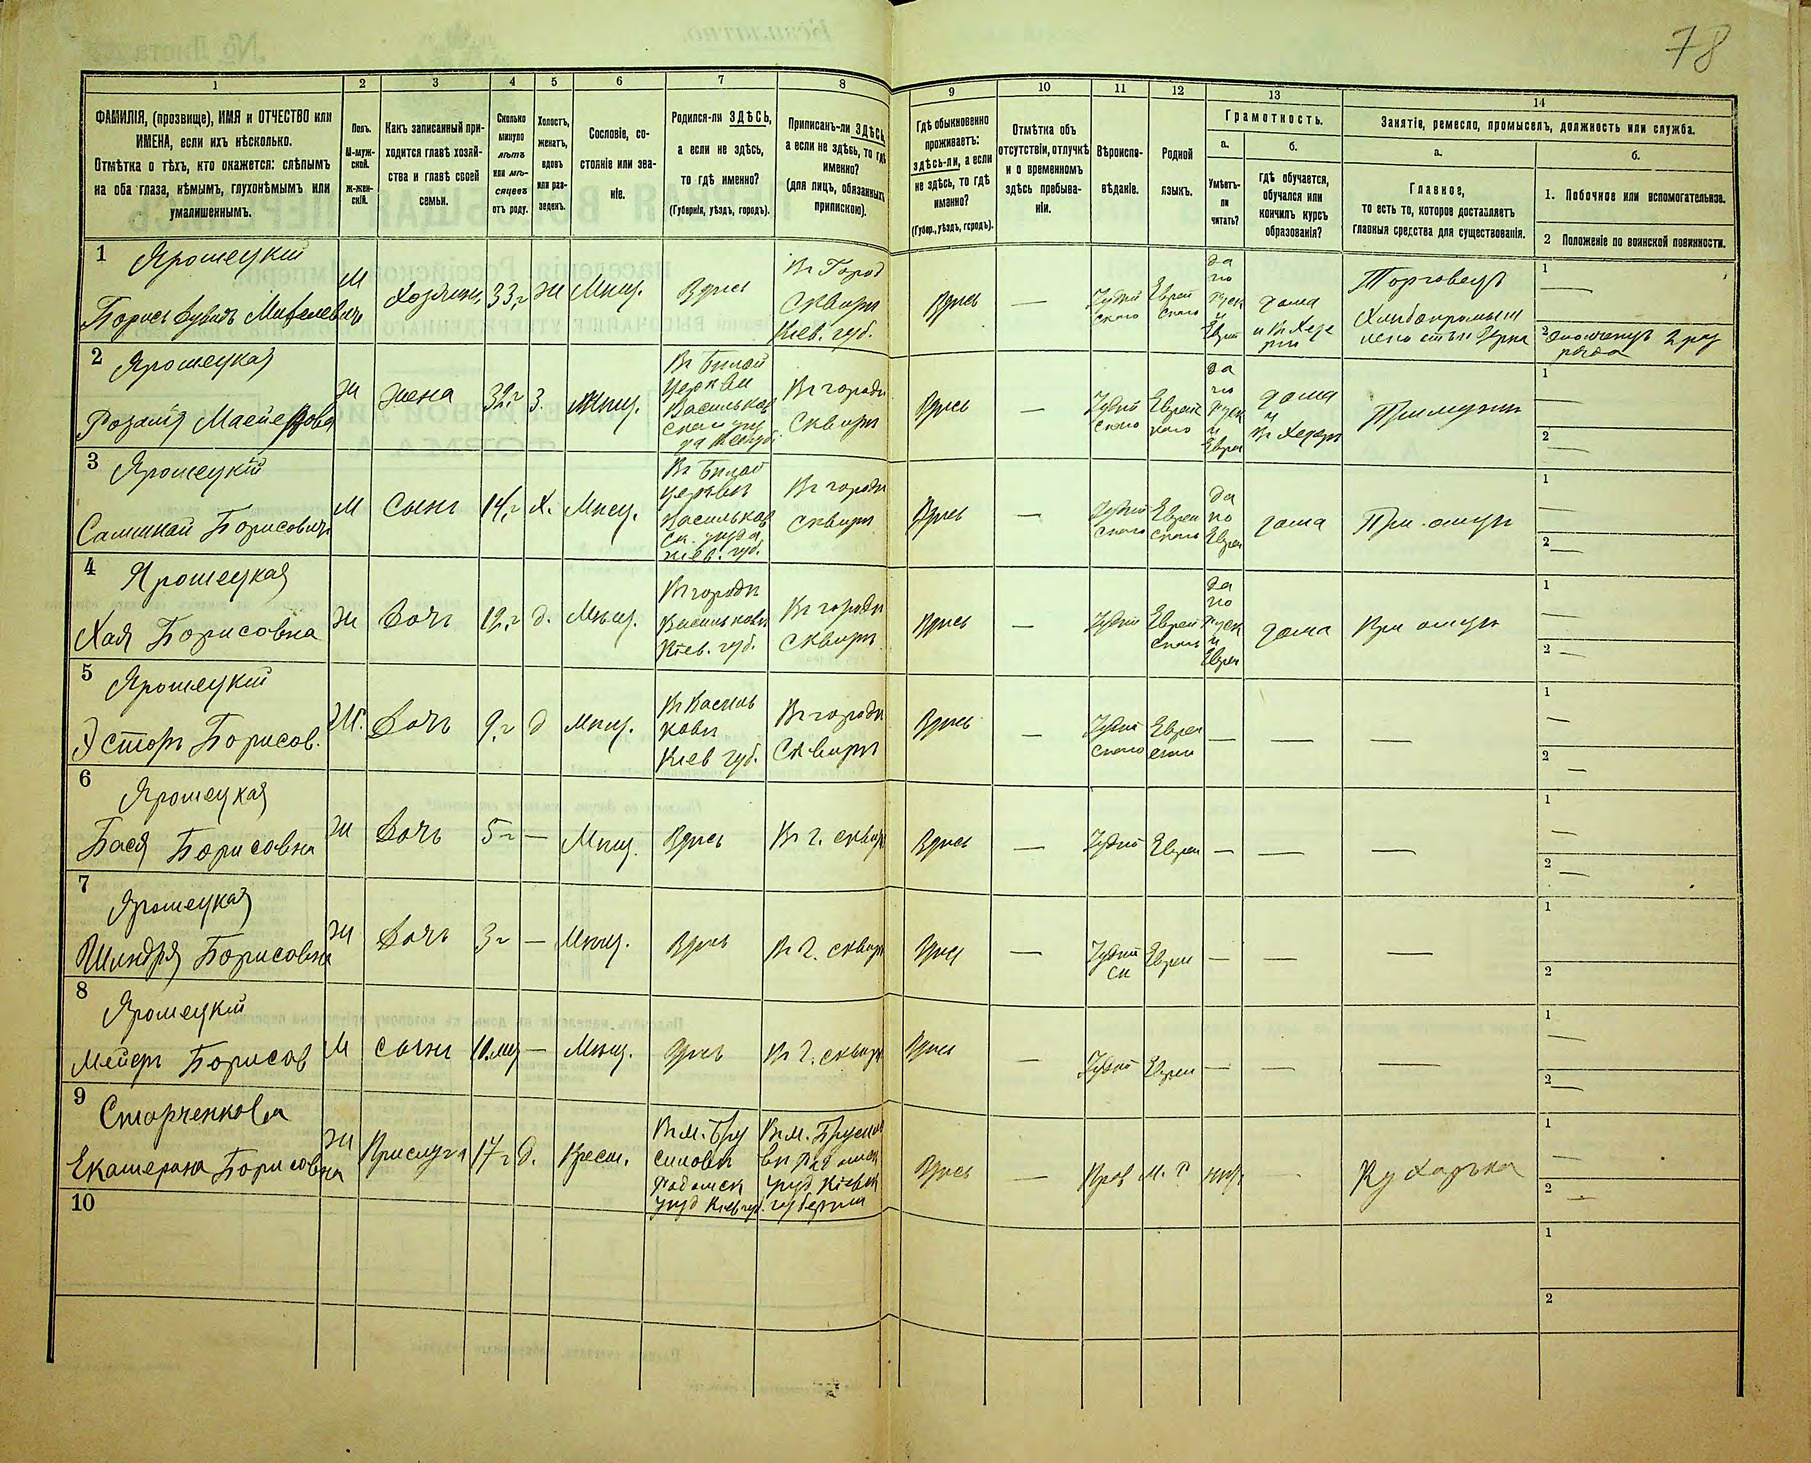 78
1
2
3
4
5
6
7
8
9
10
11
12
13
14
ФАМИЛІЯ, (прозвище), ИМЯ и ОТЧЕСТВО или
ИМЕНА, если ихъ нѣсколько.
Отмѣтка о тѣхъ, кто окажется: слѣпымъ
на оба глаза, нѣмымъ, глухонѣмымъ или
умалишеннымъ.
Полъ.
М-муж-
ской.
Ж-жен-
скій.
Какъ записанный при-
ходится главѣ хозяй-
ства и главѣ своей
семьи.
Сколько
минуло
лѣтъ
или мѣ-
сяцевъ
отъ роду.
Холостъ,
женатъ,
вдовъ
или раз-
веденъ.
Сословіе, со-
стояніе или зва-
ніе.
Родился-ли ЗДѢСЬ,
а если не здѣсь,
то гдѣ именно?
(Губернія, уѣздъ, городъ).
Приписанъ-ли ЗДѢСЬ,
а если не здѣсь, то гдѣ
именно?
(для лицъ, обязанныхъ
припискою).
Гдѣ обыкновенно
проживаетъ:
здѣсь-ли, а если
не здѣсь, то гдѣ
именно?
(Губер., уѣздъ, городъ).
Отмѣтка объ
отсутствіи, отлучкѣ
и о временномъ
здѣсь пребыва-
ніи.
Вѣроиспо-
вѣданіе.
Родной
языкъ.
Грамотность.
а.
Умѣетъ-
ли
читать?
б.
Гдѣ обучается,
обучался или
кончилъ курсъ
образованія?
Занятія, ремесло, промыселъ, должность или служба.
а.
Главное,
то есть то, которое доставляетъ
главныя средства для существованія.
б.
1. Побочное или вспомогательное.
2 Положеніе по воинской повинности.
1 Ярошецкій
Борисъ Дувидъ
М
Хозяинъ
33 г
Ж
Мѣщ.
Здѣсь
Въ Город
Сквиры
Кіев. губ.
Здѣсь
—
да
по
Руск
и
Еврей
дома
Торговецъ
1 —
2
2 Ярошецкая
Розалія
Ж
жена
32 г
З.
Мѣщ.
Въ Бѣлой
церкви
Васильков
Въ городѣ
Сквиры
Здѣсь
—
да
по
Руск
и
Еврей
дома
и
При мужѣ
1 —
2 —
3 Ярошецкій
Борисовичъ
М
Сынъ
14 г
Х.
Мѣщ.
Въ Бѣлой
церкви
Васильков
ск. уѣзда
Кіев. губ.
Въ городѣ
Сквиры
Здѣсь
—
да
по
Еврей
дома
При отцѣ
1 —
2 —
4 Ярошецкая
Хая Борисовна
Ж
Дочь
12 г
д.
Мѣщ.
Въ городѣ
Васильковѣ
Кіев. губ.
Въ городѣ
Сквиры
Здѣсь
—
да
по
Руск
и
Еврей
дома
При отцѣ
1 —
2 —
5 Ярошецкій
Эстеръ Борисов.
Ж.
Дочь
9 г
д
Мѣщ.
Въ Василь
ковѣ
Кіев губ.
Въ городѣ
Сквиры
Здѣсь
— — — —
1 —
2 —
6 Ярошецкая
Бася Борисовна
Ж
Дочь
5 г
—
Мѣщ.
Здѣсь
Въ г. сквирѣ
Здѣсь
—
Еврей
— — —
1 —
2 —
7 Ярошецкая
Шиндля Борисовна
Ж
Дочь
3 г
—
Мѣщ.
Здѣсь
Въ г. сквирѣ
Здѣсь
—
Еврей
— — —
1
2
8 Ярошецкій
Мейеръ Борисов
М
сынъ
10 мѣс
—
Мѣщ.
Здѣсь
Въ г. сквирѣ
Здѣсь
—
Еврей
— — —
1 —
2 —
9 Старченкова
Екатерина Борисовна
Ж
Прислуга
17 г
д.
Крест.
Въ м. Бру
силовѣ
Радомск
уѣзд Кіев губ.
Въ м. Брусило
вѣ Радомск
уѣзд Кіевск
губерніи
Здѣсь
—
Прав
М. Р
Кухарка
1 —
2 —
10
1
2